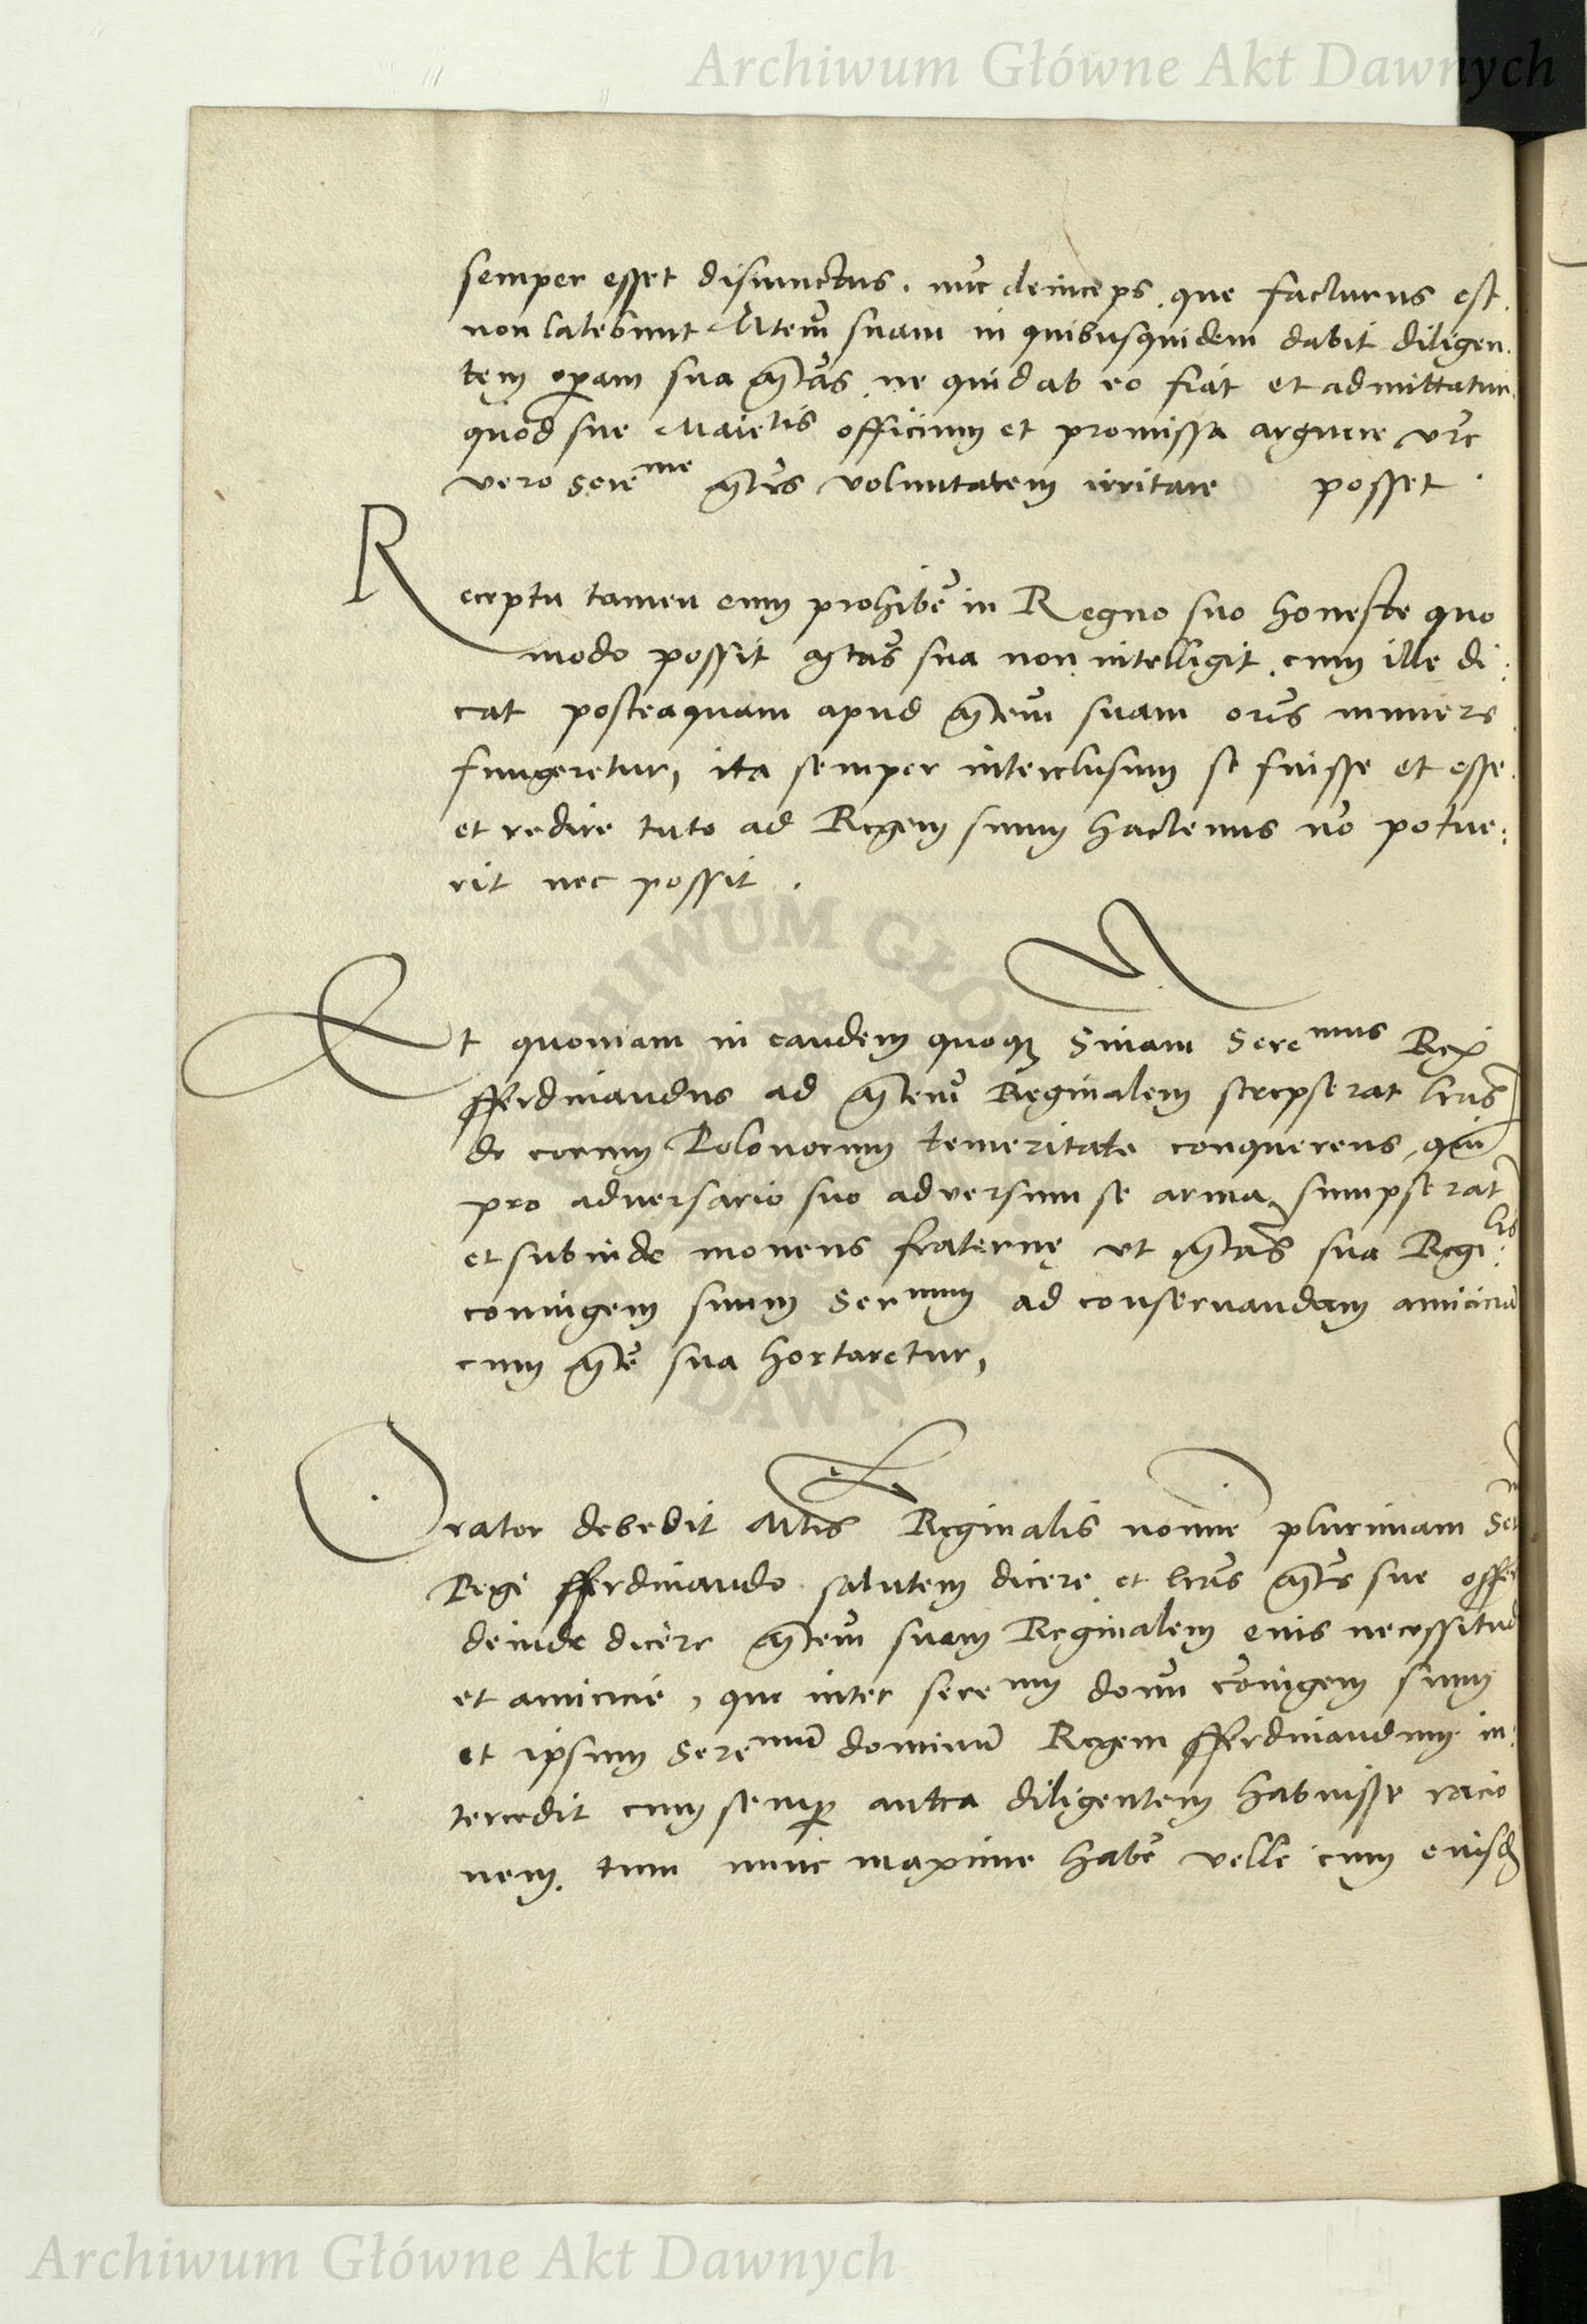 Archiwum Główne Akt Dawnych
semper esset disiunctus. nūc deinceps que facturus est.
non latebunt Mtem̄ suam in quibusquidem dabit diligen.
tem op̄am sua Mtas ne quid ab eo fiat et admittatur.
quod sue Maietis officium et promissa arguere vrē
vero Sereme Mtis voluntatem irritare posset .
Receptu tamen eum prohibē in Regno suo honeste quo
modo possit Mtas sua non intelligit. cum ille di:
cat posteaquam apud Mtem̄ suam or̄is munere
fungeretur, ita semper interclusum se fuisse et esse.
et redire tuto ad Regem suum hactenus nō potue:
rit nec possit .
Et quoniam in eandem quoq3 S̄niam Serenmus Rex
fferdinandus ad Mtem̄ Reginalem screpserat lr̄as
de eorum Polonorum temeritate conquerens, qui
pro adversario suo adversum se arma sumpserāt
et subinde monens fraternę ut Mtas sua Regi:lis
coniugem suum Sernmum ad conservandam amiciciā
cum Mtē sua hortaretur,
Orator debebit Mtis Reginalis nomīe plurimam
Rege fferdinando salutem dicere et lr̄as Mtis sue
deinde dicere Mtem̄ suam Reginalem eius
et amicicie, que inter Serenm dom̄ cōiugem suum
et ipsum Serenmū dominū Regem fferdinandum in:
tercedit cum semp̄ antea diligentem habuisse racio
nem. tum nunc maxime habē velle cum eiusd
ARCHIWUM GŁÓWNE AKT DAWNYCH
Archiwum Główne Akt Dawnych